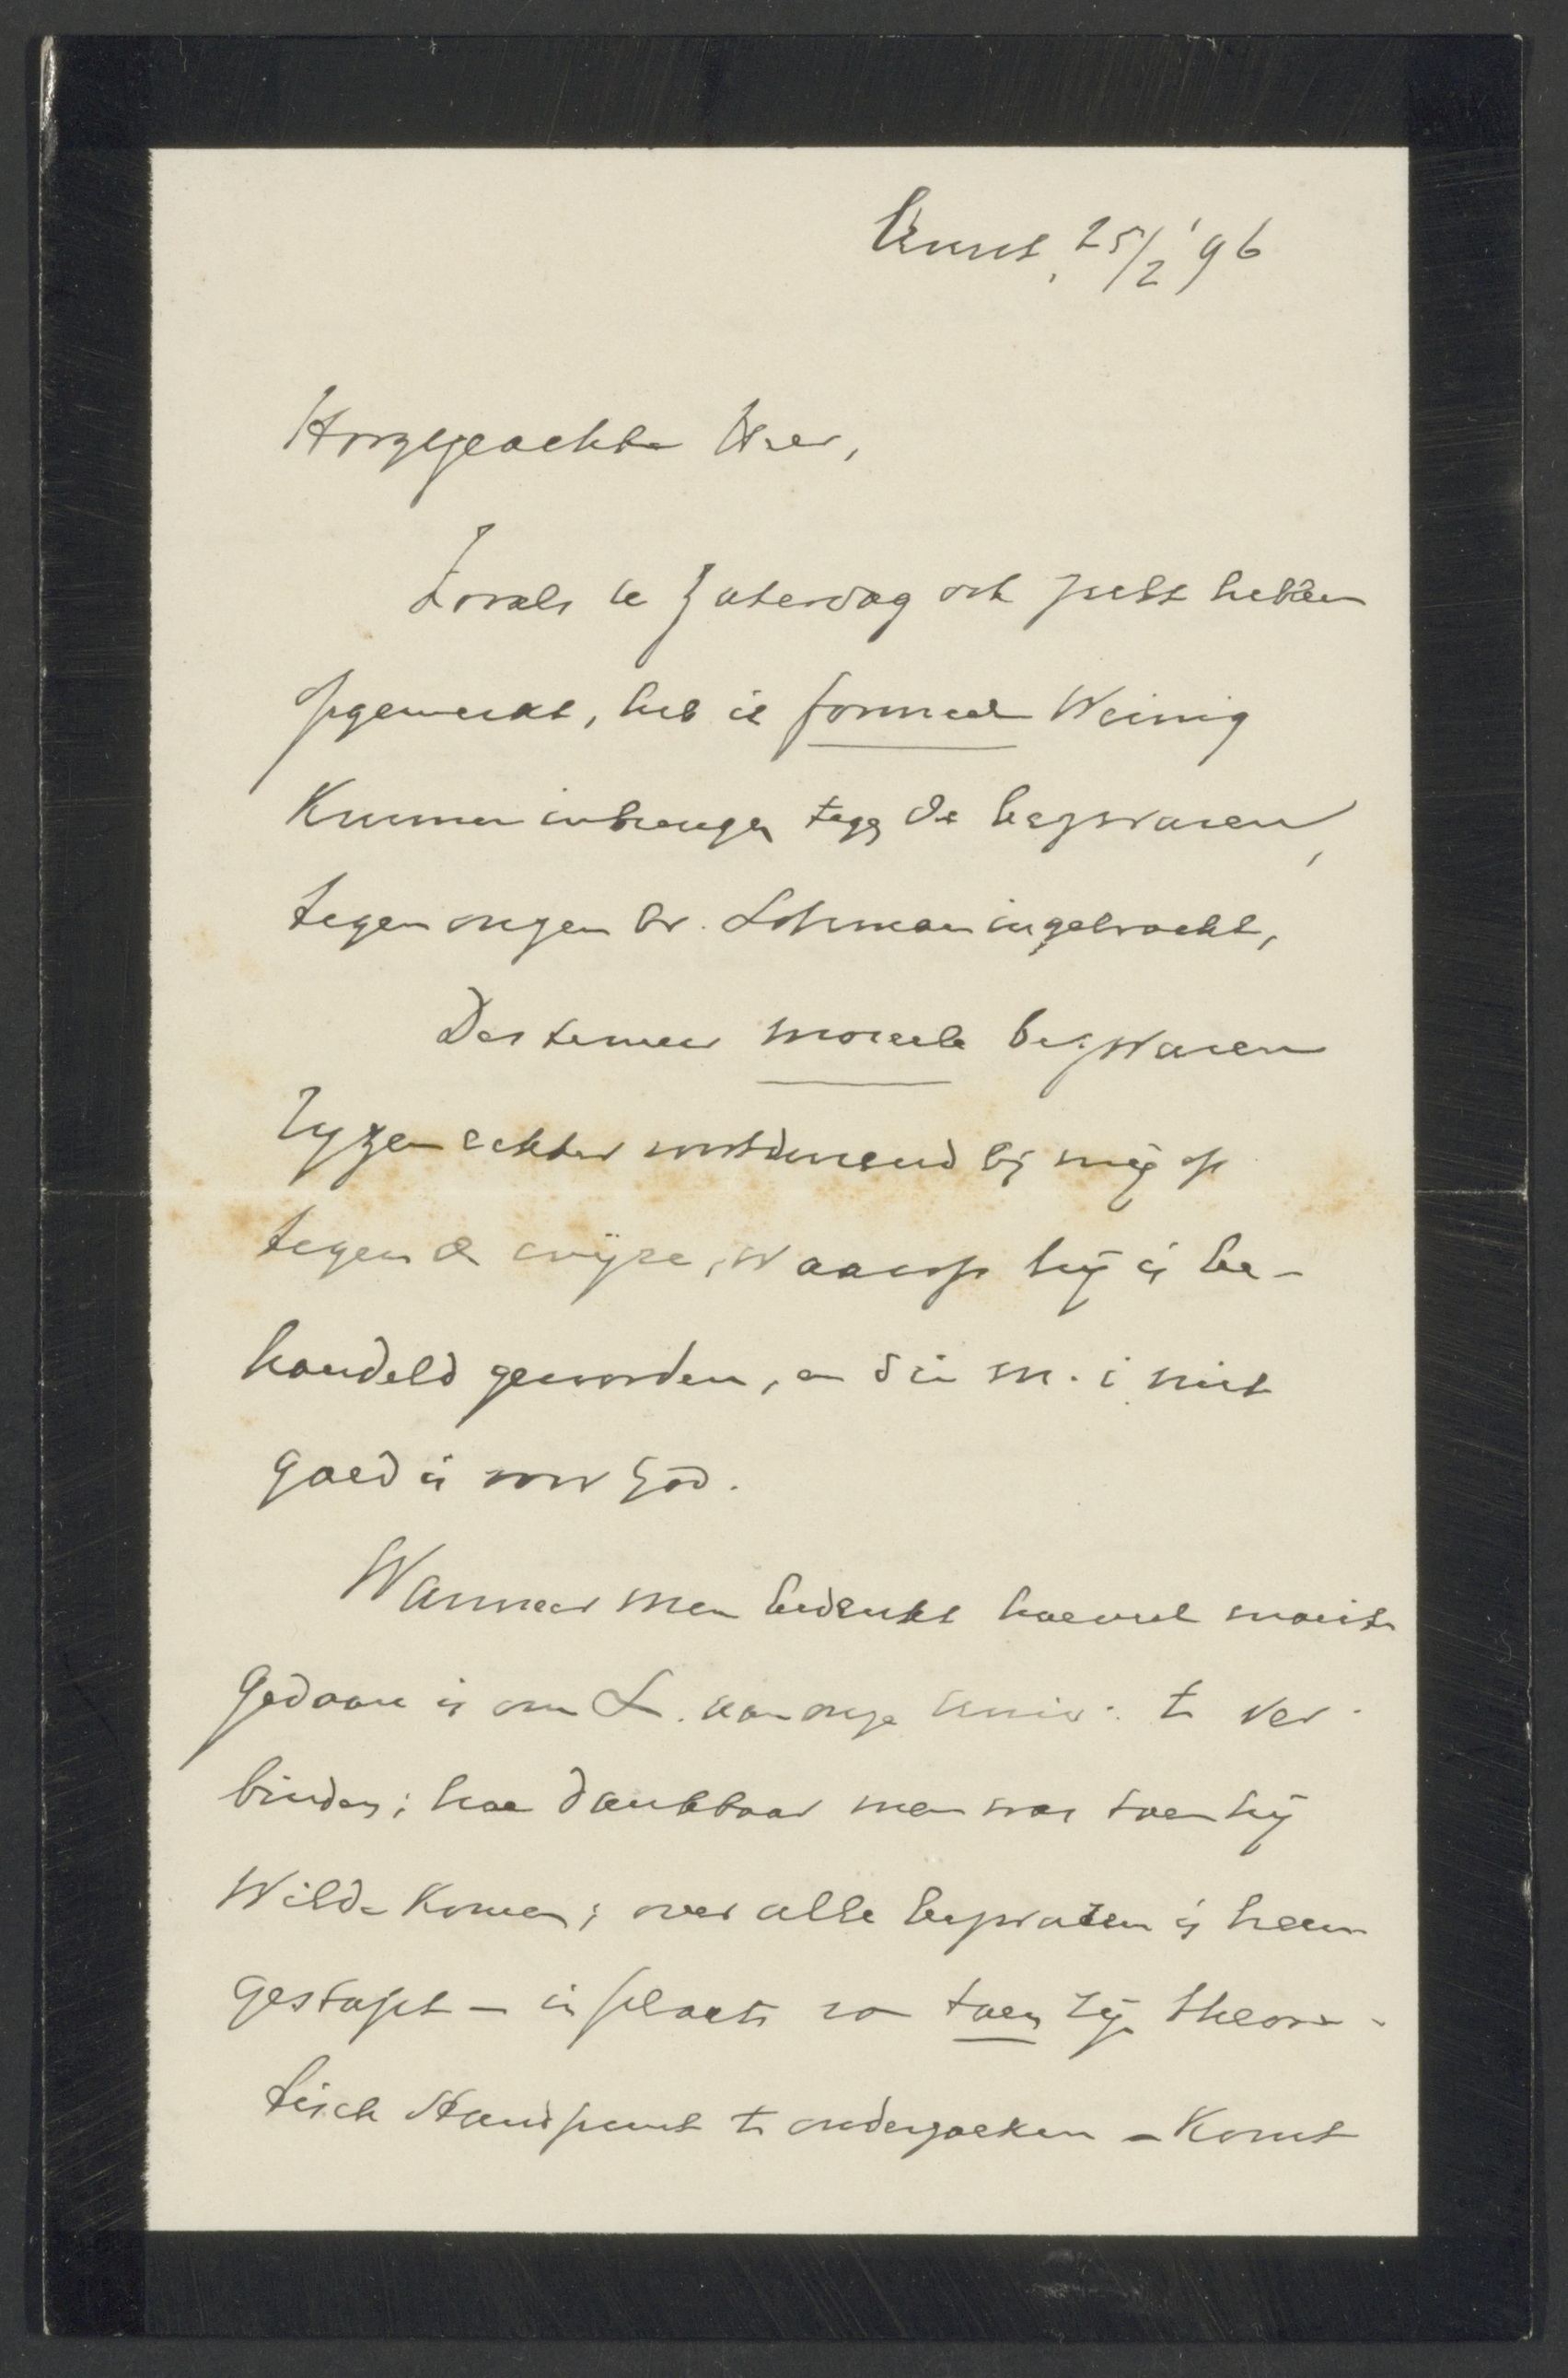 25/2 '96
Hooggeachte Heer,
Zooals u Zaterdag ook zult hebben
opgemerkt, heb ik formeel weinig
kunnen inbrengen tegen de bezwaren,
tegen onzen br. Lohman ingebracht,
Des te meer moreele bezwaren
rijzen echter voortdurend bij mij op
tegen de wijze, waarop hij is be-
handeld geworden, en die m.i. niet
goed is voor God.
Wanneer men bedenkt hoeveel moeite
gedaan is om L. aan onze Univ. te ver-
binden; hoe dankbaar men was toen hij
wilde komen; over alle bezwaren is heen
gestapt – in plaats van toen zijn theore-
tisch standpunt te onderzoeken – komt